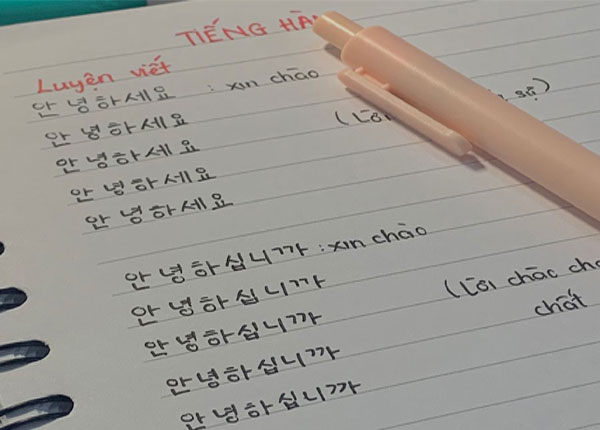 TIẾNG HÀN
Luyện viết
안녕하세요 : xin chào
안녕하세요 (Lời sự)
안녕하세요
안녕하세요
안녕하세요
안녕하십니까 : xin chào
안녕하십니까 (Lời chào
안녕하십니까 chất
안녕하십니까
안녕하십니까